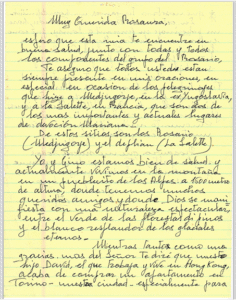 Muy Querida Rosaura,
espero que esta mía te encuentre en
buena salud, junto con todas y todos
los componentes del grupo del Rosario,
Te aseguro que todos ustedes están
siempre presente en mis oraciones, en
especial en ocasion de los peregrinajes
que hice a Medjugorje, en la ex Yugoslavia,
y a La Salette, en Francia, que son dos de
los mas importantes y actuales lugares
de devoción Mariana.
De estos sitios son los Rosarios
(Medjugorje) y el (La Salette)
Yo y Gino estamos bien de salud, y
actualmente vivimos en la montaña
en un pueblecito de los Alpes, a metros
de altura, donde tenemos muchos
queridos amigos y donde Dios se mani-
esta con una naturaleza espectacular,
entre el verde de las florestas di pinos
y el blanco resplandor de los glaciales
eternos.
Mientras tantos como
gracias mas del Señor te diré que nuestro
hijo David, el que trabaja y vive en Hong Kong,
acaba de comprar un apartamento en
Torino - nuestra ciudad - especialmente para